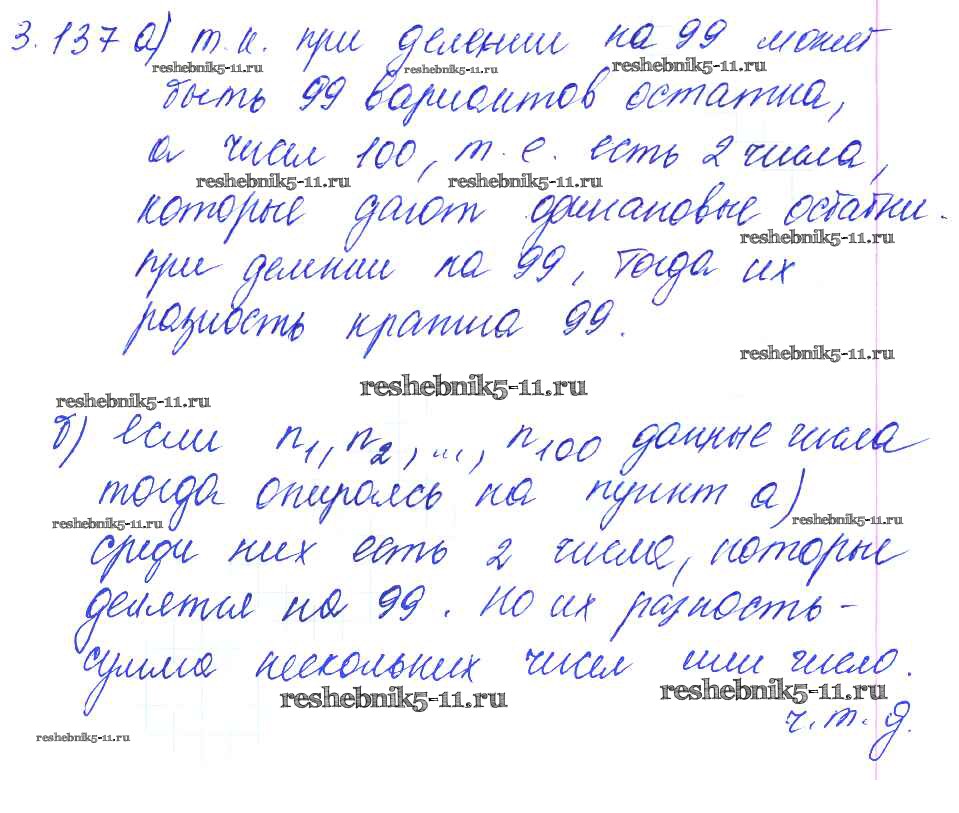 3.137 а) т.к. при делении на 99 может
reshebnik5-11.ru reshebnik5-11.ru reshebnik5-11.ru
быть 99 вариантов остатка,
а чисел 100, т.е. есть 2 числа,
reshebnik5-11.ru reshebnik5-11.ru
которые дают одинаковые остатки.
reshebnik5-11.ru
при делении на 99, тогда их
разность кратна 99.
reshebnik5-11.ru
reshebnik5-11.ru
reshebnik5-11.ru
б) если n1, n2, ..., n100 данные числа
тогда опираясь на пункт а)
reshebnik5-11.ru reshebnik5-11.ru
среди них есть 2 числа, которые
делятся на 99. Но их разность -
сумма нескольких чисел или число.
reshebnik5-11.ru reshebnik5-11.ru
ч.т.д.
reshebnik5-11.ru